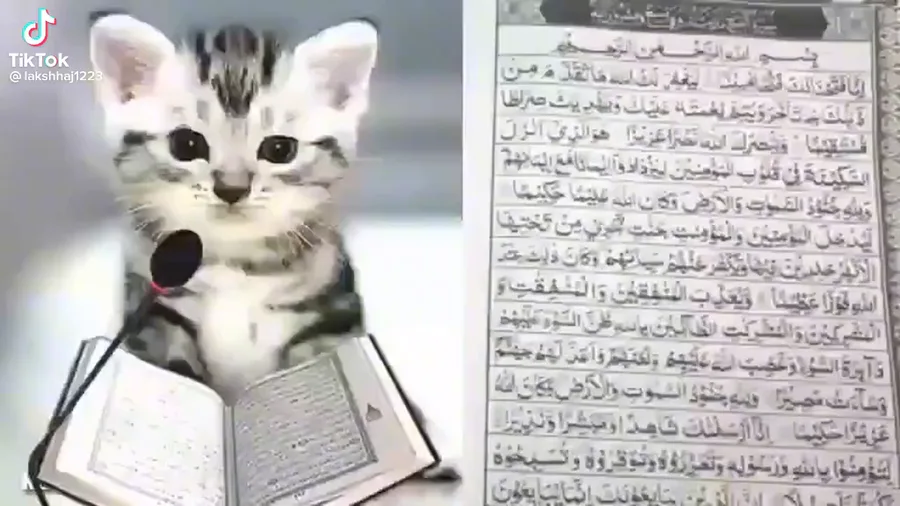 TikTok
@lakshhaj1223
بسم الله الرحمن الرحيم
انا فتحنا لك فتحا مبينا ليغفر لك الله ما تقدم من
ذنبك وما تاخر ويتم نعمته عليك ويهديك صراطا
مستقيما وينصرك الله نصرا عزيزا هو الذي انزل
السكينة في قلوب المؤمنين ليزدادوا ايمانا مع ايمانهم
ولله جنود السموت والارض وكان الله عليما حكيما
ليدخل المؤمنين والمؤمنت جنت تجري من تحتها
الانهر خلدين فيها ويكفر عنهم سياتهم وكان ذلك عند
الله فوزا عظيما ويعذب المنفقين والمنفقت و
المشركين والمشركت الظانين بالله ظن السوء عليهم
دائرة السوء وغضب الله عليهم ولعنهم واعد لهم جهنم
وساءت مصيرا ولله جنود السموت والارض وكان الله
عزيزا حكيما انا ارسلنك شاهدا ومبشرا ونذيرا
لتؤمنوا بالله ورسوله وتعزروه وتوقروه وتسبحوه
بكرة واصيلا ان الذين يبايعونك انما يبايعون